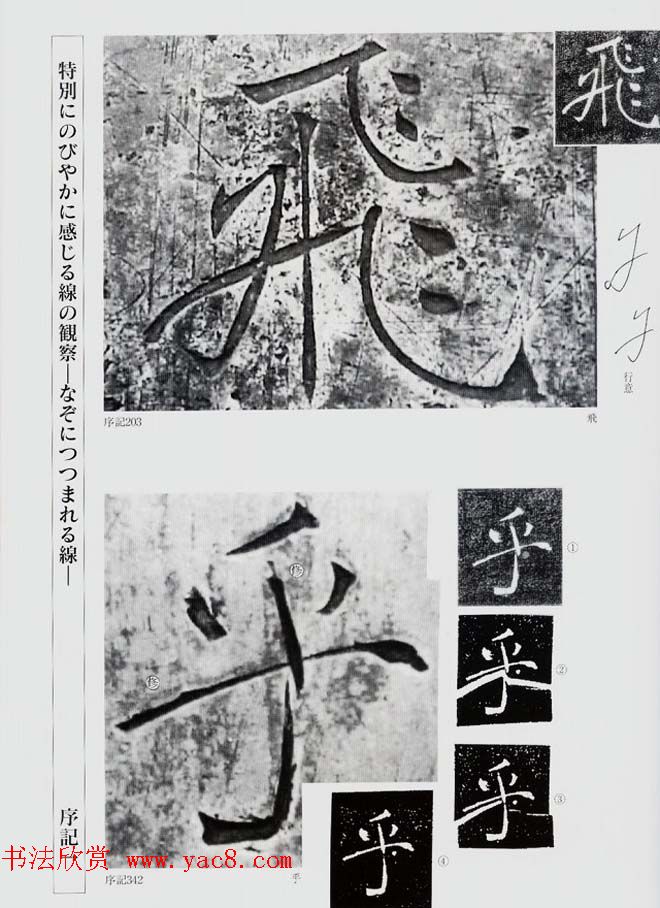 特別にのびやかに感じる線の観察―なぞにつつまれる線―
序記
飛
飛
行意
序記203
飛
乎
修
修
乎
①
乎
②
乎
③
乎
④
序記342
乎
书法欣赏 www.yac8.com